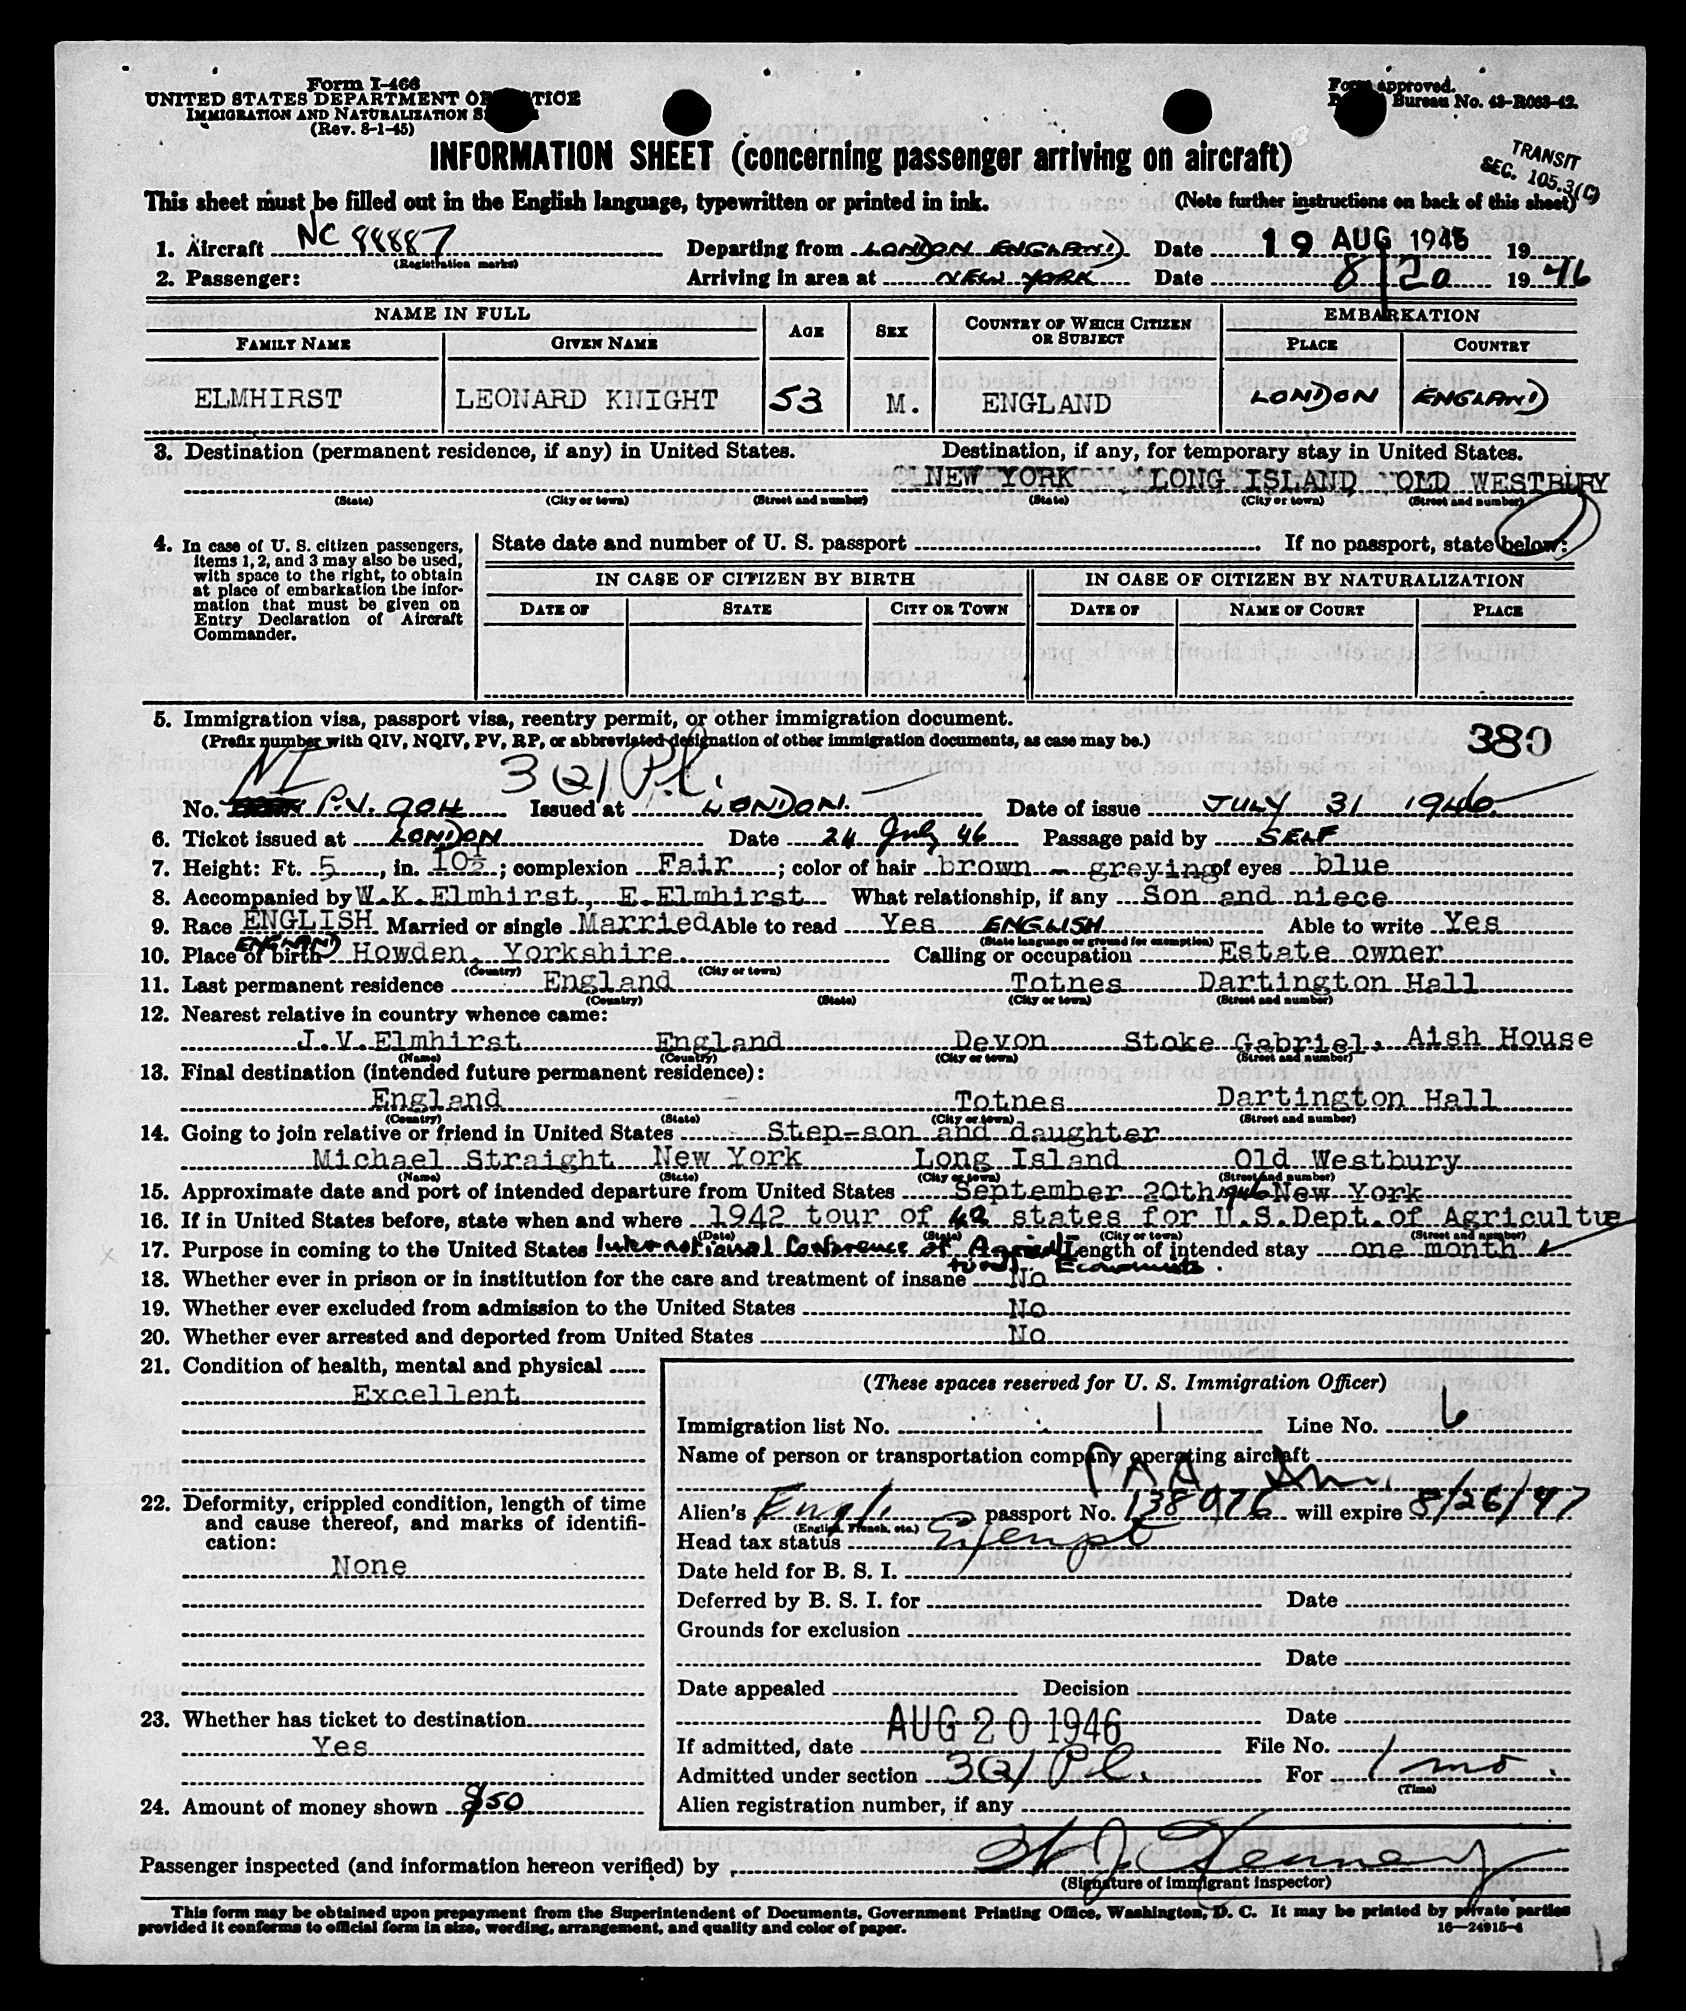 Form I-466
UNITED STATES DEPARTMENT OF JUSTICE
IMMIGRATION AND NATURALIZATION
(Rev. 8-1-45)
Form approved.
Bureau No. 43-R063-42.
INFORMATION SHEET (concerning passenger arriving on aircraft)
TRANSIT
SEC. 105.3(C)
This sheet must be filled out in the English language, typewritten or printed in ink. (Note further instructions on back of this sheet)
1. Aircraft NC 88887 Departing from LONDON ENGLAND Date 19 AUG 1946 19
(Registration marks)
2. Passenger: Arriving in area at NEW YORK Date 8/20 1946
NAME IN FULL AGE SEX COUNTRY OF WHICH CITIZEN OR SUBJECT EMBARKATION
FAMILY NAME GIVEN NAME PLACE COUNTRY
ELMHIRST LEONARD KNIGHT 53 M. ENGLAND LONDON ENGLAND
3. Destination (permanent residence, if any) in United States. Destination, if any, for temporary stay in United States.
NEW YORK LONG ISLAND OLD WESTBURY
(State) (City or town) (Street and number) (State) (City or town) (Street and number)
4. In case of U. S. citizen passengers, items 1, 2, and 3 may also be used, with space to the right, to obtain at place of embarkation the information that must be given on Entry Declaration of Aircraft Commander.
State date and number of U. S. passport If no passport, state below:
IN CASE OF CITIZEN BY BIRTH IN CASE OF CITIZEN BY NATURALIZATION
DATE OF STATE CITY OR TOWN DATE OF NAME OF COURT PLACE
5. Immigration visa, passport visa, reentry permit, or other immigration document.
(Prefix number with QIV, NQIV, PV, RP, or abbreviated designation of other immigration documents, as case may be.)
380
NI 3(2)/P.L.
No. P.V. 904 Issued at LONDON. Date of issue JULY 31 1946
6. Ticket issued at LONDON Date 24 July 46 Passage paid by SELF
7. Height: Ft. 5, in. 10½; complexion Fair; color of hair brown - greying of eyes blue
8. Accompanied by W.K.Elmhirst, E.Elmhirst What relationship, if any Son and niece
9. Race ENGLISH Married or single Married Able to read Yes ENGLISH Able to write Yes
(State language or ground for exemption)
10. Place of birth ENGLAND Howden, Yorkshire. Calling or occupation Estate owner
(Country) (City or town)
11. Last permanent residence England Totnes Dartington Hall
(Country) (State) (City or town) (Street and number)
12. Nearest relative in country whence came:
J.V.Elmhirst England Devon Stoke Gabriel, Aish House
(Name) (Country) (City or town) (Street and number)
13. Final destination (intended future permanent residence):
England Totnes Dartington Hall
(Country) (State) (City or town) (Street and number)
14. Going to join relative or friend in United States Step-son and daughter
Michael Straight New York Long Island Old Westbury
(Name) (State) (City or town) (Street and number)
15. Approximate date and port of intended departure from United States September 20th 1946 New York
16. If in United States before, state when and where 1942 tour of 42 states for U.S.Dept.of Agricultue
(Date) (State) (City or town) (Street and number)
17. Purpose in coming to the United States International Conference of Agricultural Economists. Length of intended stay one month
18. Whether ever in prison or in institution for the care and treatment of insane No
19. Whether ever excluded from admission to the United States No
20. Whether ever arrested and deported from United States No
21. Condition of health, mental and physical
Excellent
22. Deformity, crippled condition, length of time and cause thereof, and marks of identification:
None
23. Whether has ticket to destination
Yes
24. Amount of money shown $50
(These spaces reserved for U. S. Immigration Officer)
Immigration list No. 1 Line No. 6
Name of person or transportation company operating aircraft
PAA
Alien's Engl. passport No. 138076 will expire 8/26/47
(English, French, etc.)
Head tax status Exempt
Date held for B. S. I.
Deferred by B. S. I. for Date
Grounds for exclusion
Date
Date appealed Decision
Date
If admitted, date AUG 20 1946 File No.
Admitted under section 3(2)/P.L. For 1 mo.
(Time)
Alien registration number, if any
Passenger inspected (and information hereon verified) by W J Kennedy
(Signature of immigrant inspector)
This form may be obtained upon prepayment from the Superintendent of Documents, Government Printing Office, Washington, D. C. It may be printed by private parties
provided it conforms to official form in size, wording, arrangement, and quality and color of paper. 16—24915-4